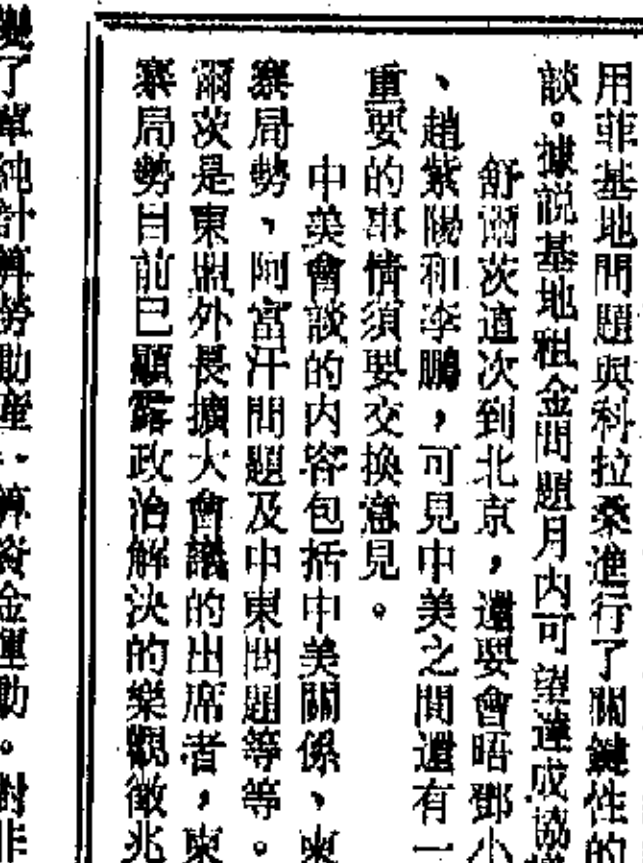 用菲基地問題與科拉桑進行了關鍵性的
談。據説基地租金問題月内可望達成協
舒爾茨這次到北京，還要會晤鄧小
、趙紫陽和李鵬，可見中美之間還有一
重要的事情須要交換意見。
中美會談的内容包括中美關係、東
寨局勢、阿富汗問題及中東問題等等。
爾茨是東盟外長擴大會議的出席者，東
寨局勢目前已顯露政治解決的樂觀徵兆
變了單純計算勞動産、算資金運動。對非